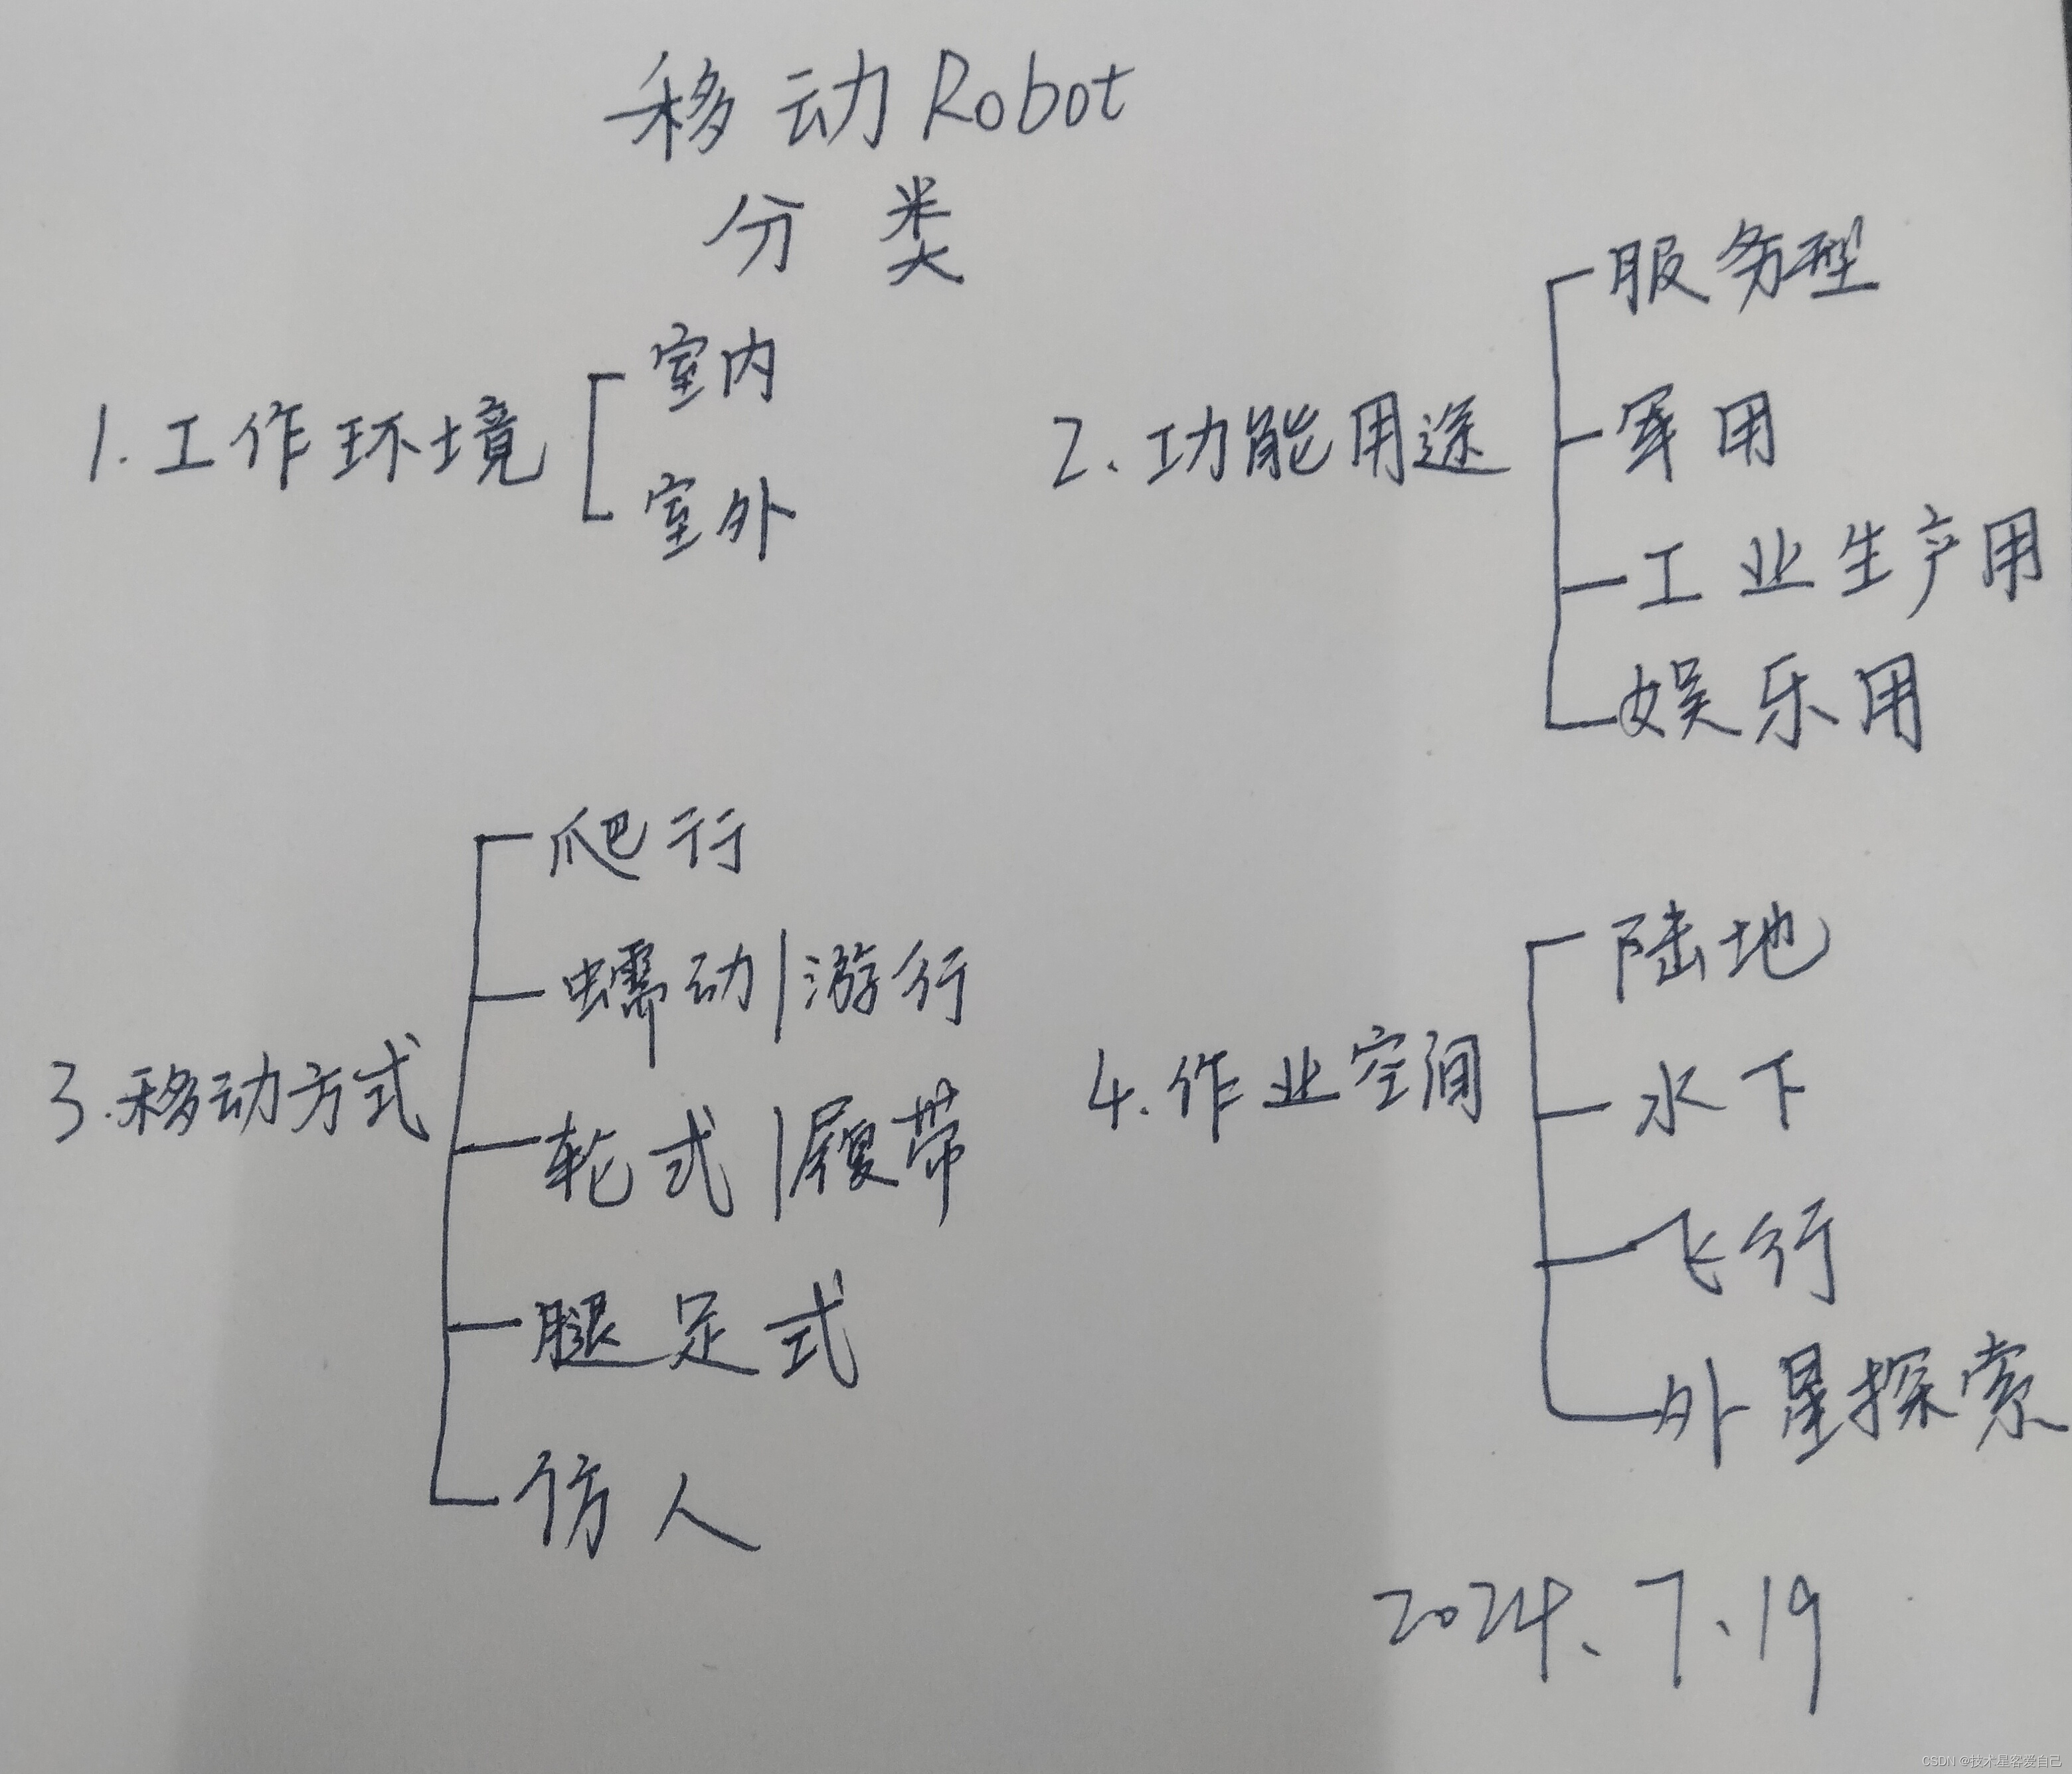 移动Robot
分类
1.工作环境
室内
室外
2.功能用途
服务型
军用
工业生产用
娱乐用
3.移动方式
爬行
蠕动|游行
轮式|履带
腿足式
仿人
4.作业空间
陆地
水下
飞行
外星探索
2024、7、19
CSDN @技术星客爱自己